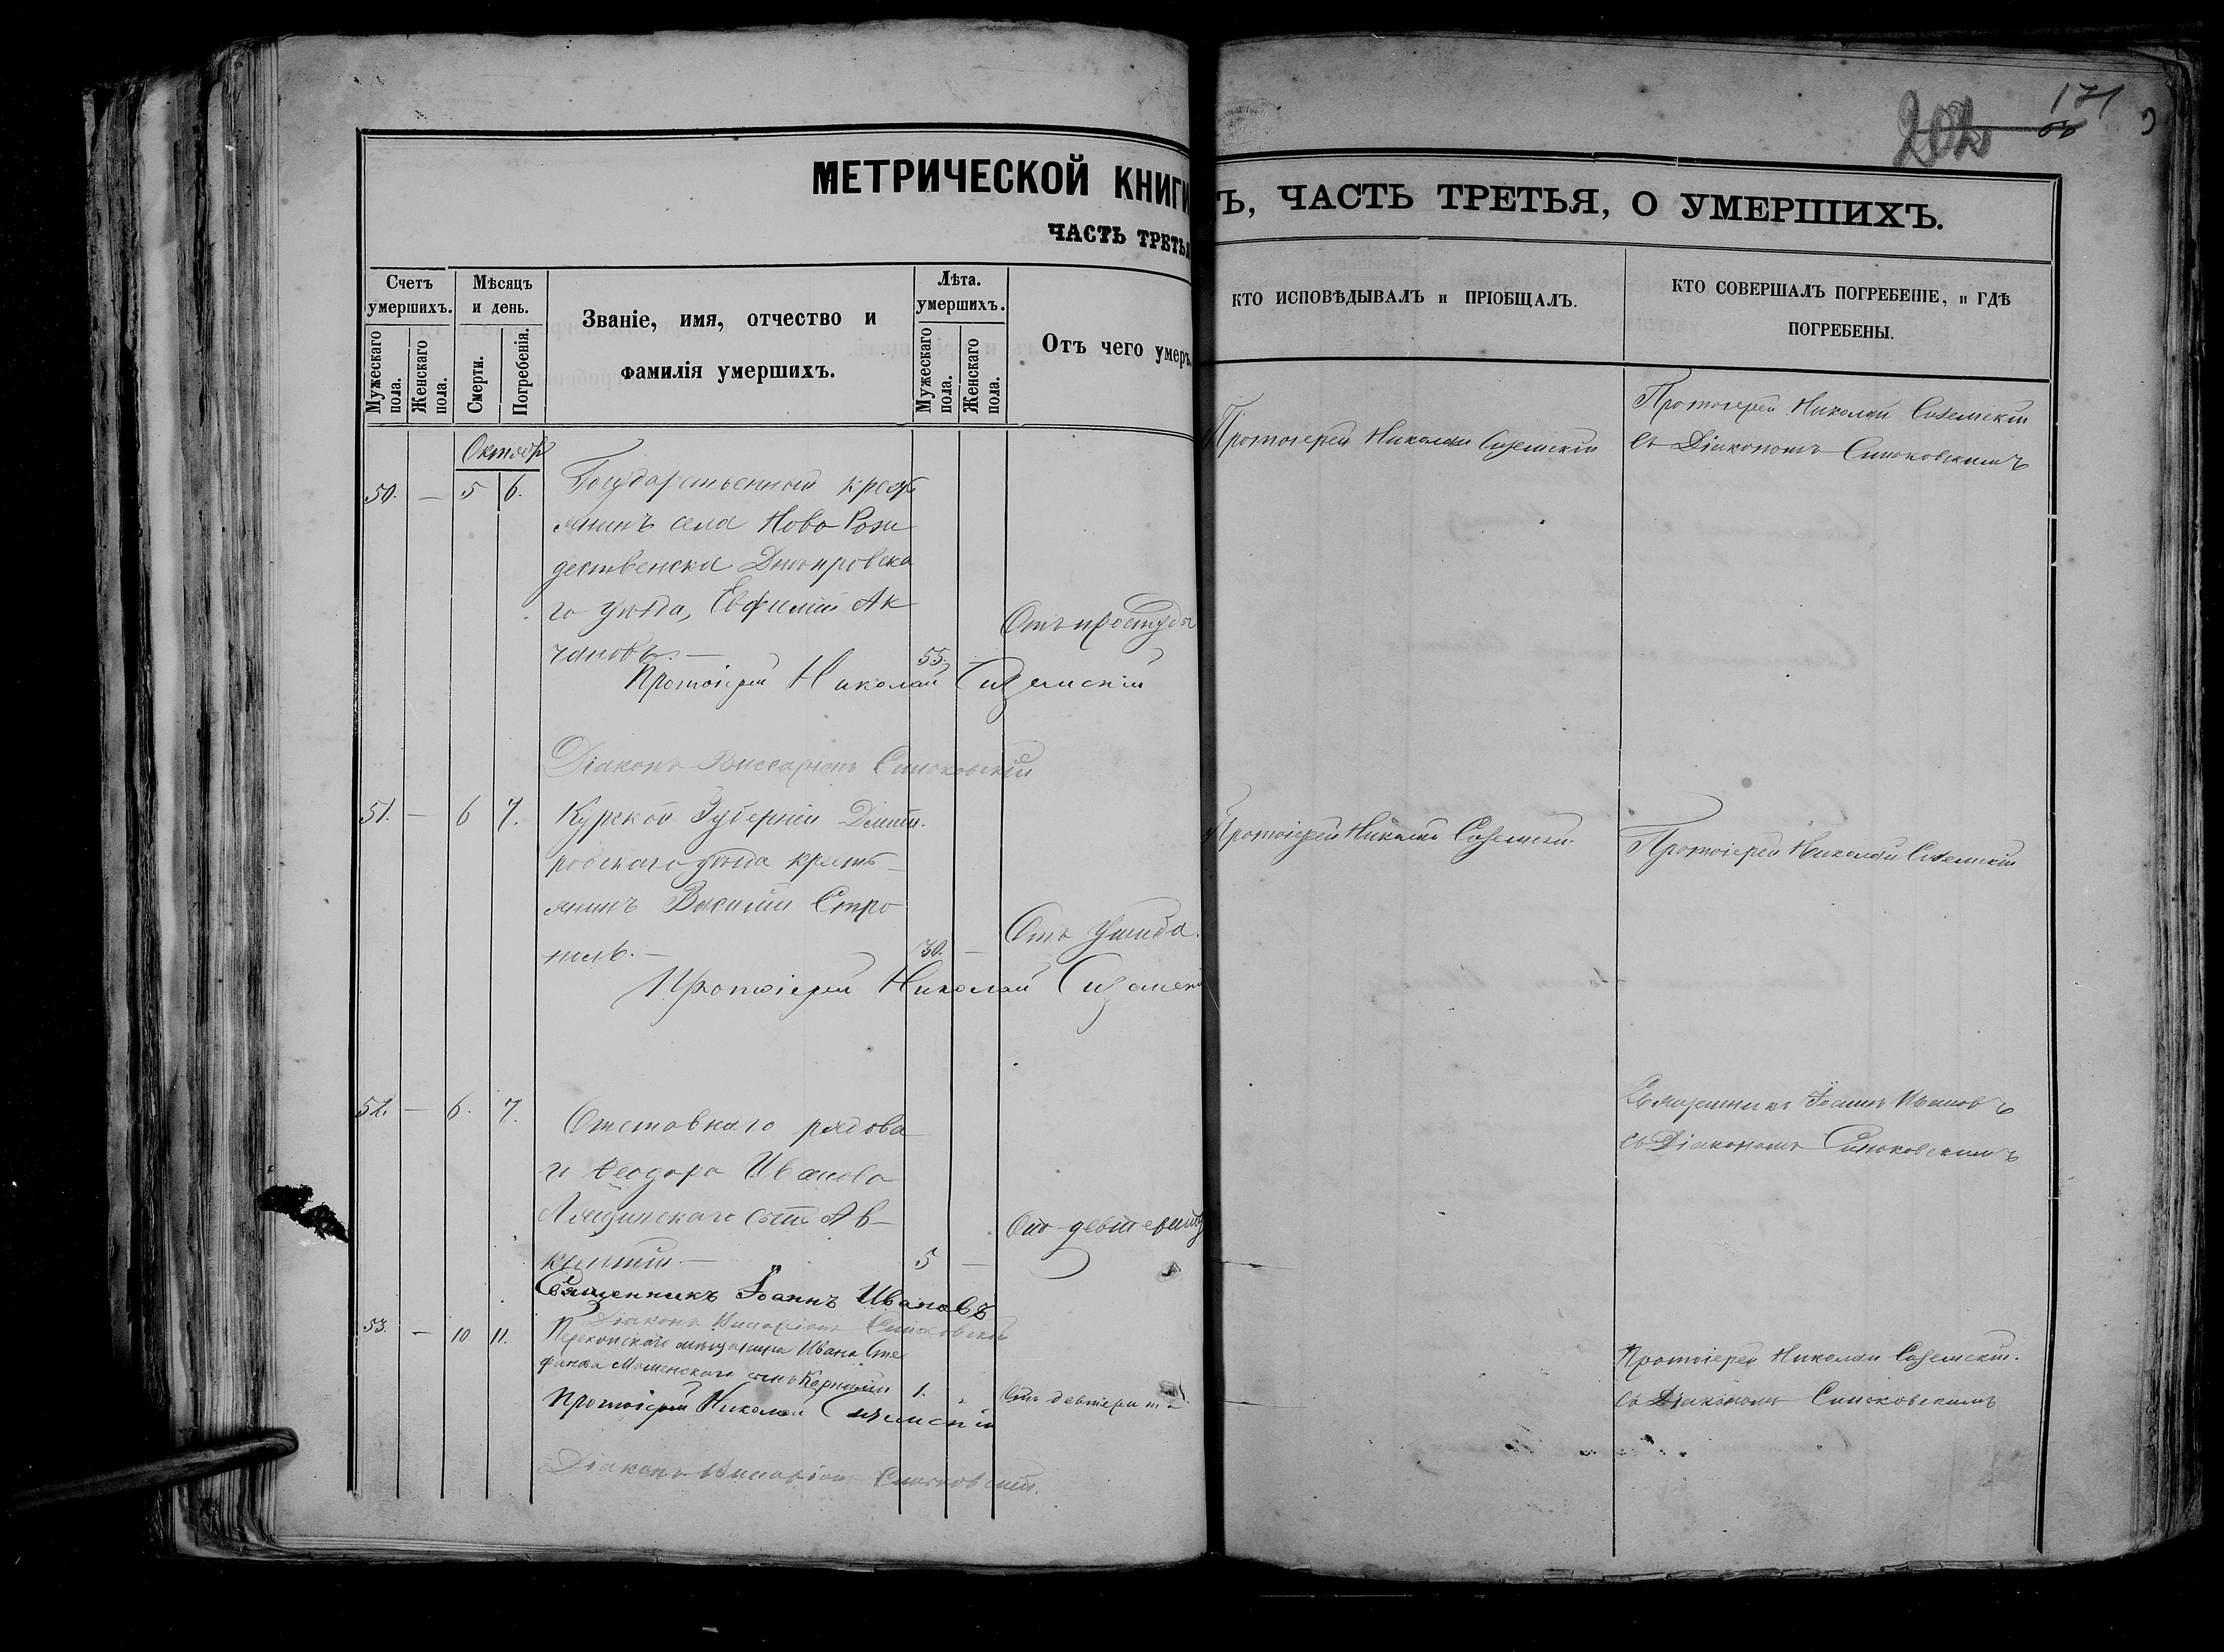 202
171
МЕТРИЧЕСКОЙ КНИГИ
Ъ, ЧАСТЬ ТРЕТЬЯ, О УМЕРШИХЪ.
ЧАСТЬ ТРЕТЬЯ
Счетъ умершихъ.
Мужескаго пола.
Женскаго пола.
Мѣсяцъ и день.
Смерти.
Погребенія.
Званіе, имя, отчество и
фамилія умершихъ.
Лѣта.
умершихъ.
Мужескаго пола.
Женскаго пола.
Отъ чего умеръ
КТО ИСПОВѢДЫВАЛЪ и ПРІОБЩАЛЪ.
КТО СОВЕРШАЛЪ ПОГРЕБЕНІЕ, и ГДѢ
ПОГРЕБЕНЫ.
Октябр
50. — 5 6. Государственный кресть
янинъ села Ново Рож
дественска Днѣпровска
го уѣзда, Евфимій Ак
чановъ. — 55. — Отъ простуды
Протоіерей Николай Сиземскій
Діаконъ Виссаріонъ Синьковскій
Протоіерей Николай Сиземскій
Протоіерей Николай Сиземскій
съ Діакономъ Синьковскимъ
51. — 6 7. Курской Губерніи Дмит
ровскаго уѣзда кресть
янинъ Василій Стро
тель. — 30. — Отъ ушиба.
Протоіерей Николай Сиземскі
Протоіерей Николай Сиземскій
Протоіерей Николай Сиземскій
52. — 6. 7. Отставнаго рядова
го Ѳеодора Иванова
сынъ Ав
5 —
Священникъ Іоаннъ Ивановъ
Діаконъ Виссаріонъ Синьковскій
Священникъ Іоаннъ Ивановъ
съ Діакономъ Синьковскимъ
53. — 10 11. Перекопскаго мѣщанина Ивана Сте
фанова сынъ Корнилій 1. Отъ девтерита
Протоіерей Николай Сиземскій
Діаконъ Виссаріонъ Синьковскій.
Протоіерей Николай Сиземскій.
съ Діакономъ Синьковскимъ